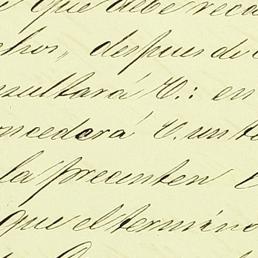 que debe reca
chos, despues de
sultará V.: en
oncederá V. un té
la precenten
que el término